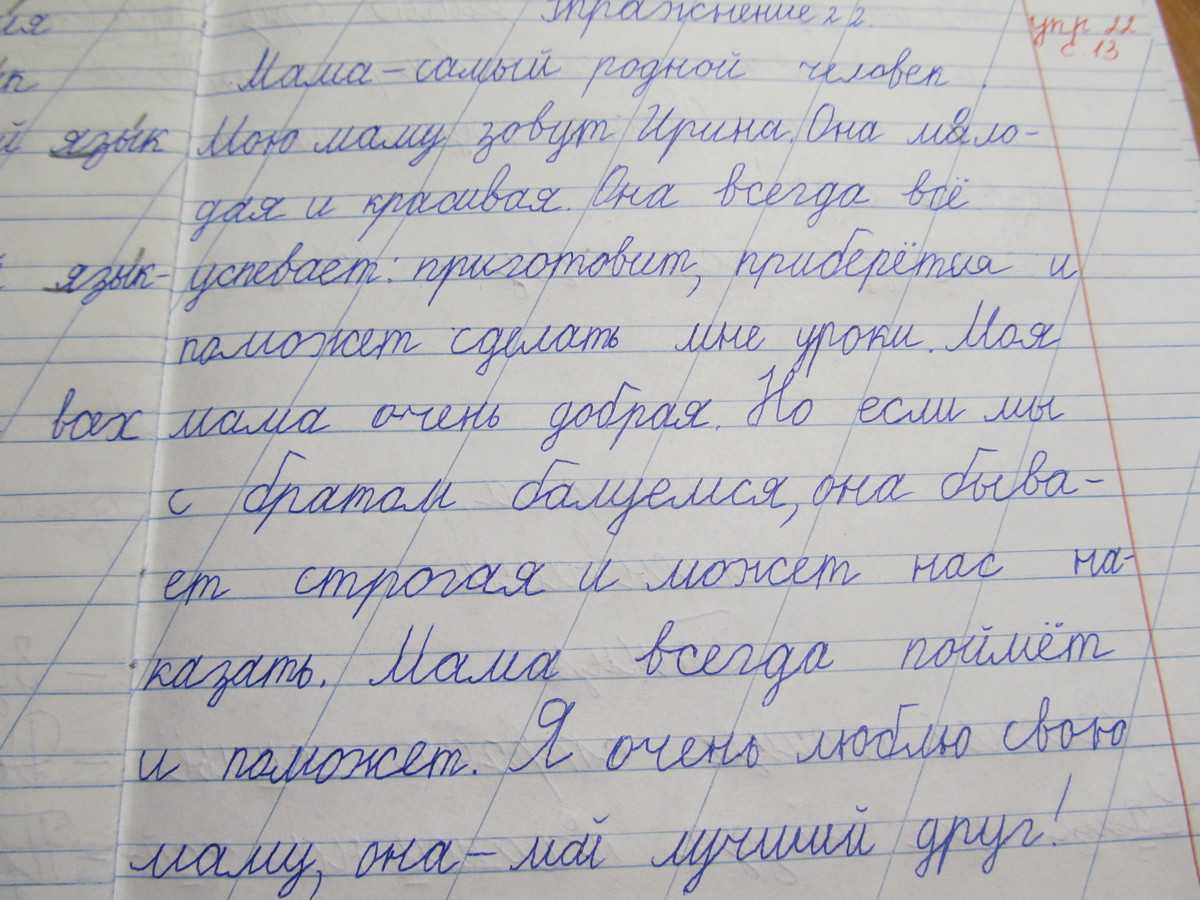 Упражнение 22.
упр 22
с. 13
Мама – самый родной человек.
Мою маму зовут Ирина. Она моло-
дая и красивая. Она всегда всё
успевает: приготовит, приберётся и
поможет сделать мне уроки. Моя
мама очень добрая. Но если мы
с братом балуемся, она быва-
ет строгая и может нас на-
казать. Мама всегда поймёт
и поможет. Я очень люблю свою
маму, она – мой лучший друг!
й язык
язык-
всех